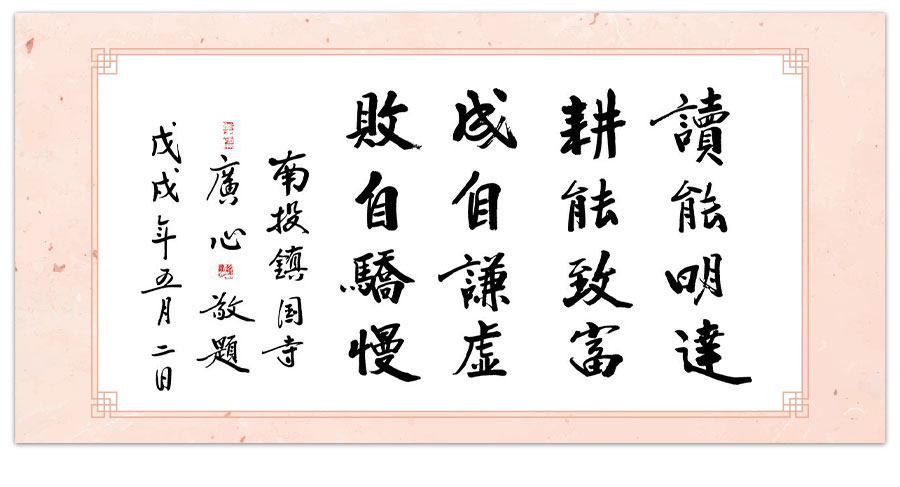 讀能明達
耕能致富
成自謙虛
敗自驕慢
南投鎮国寺
廣心敬題
戊戌年五月二日